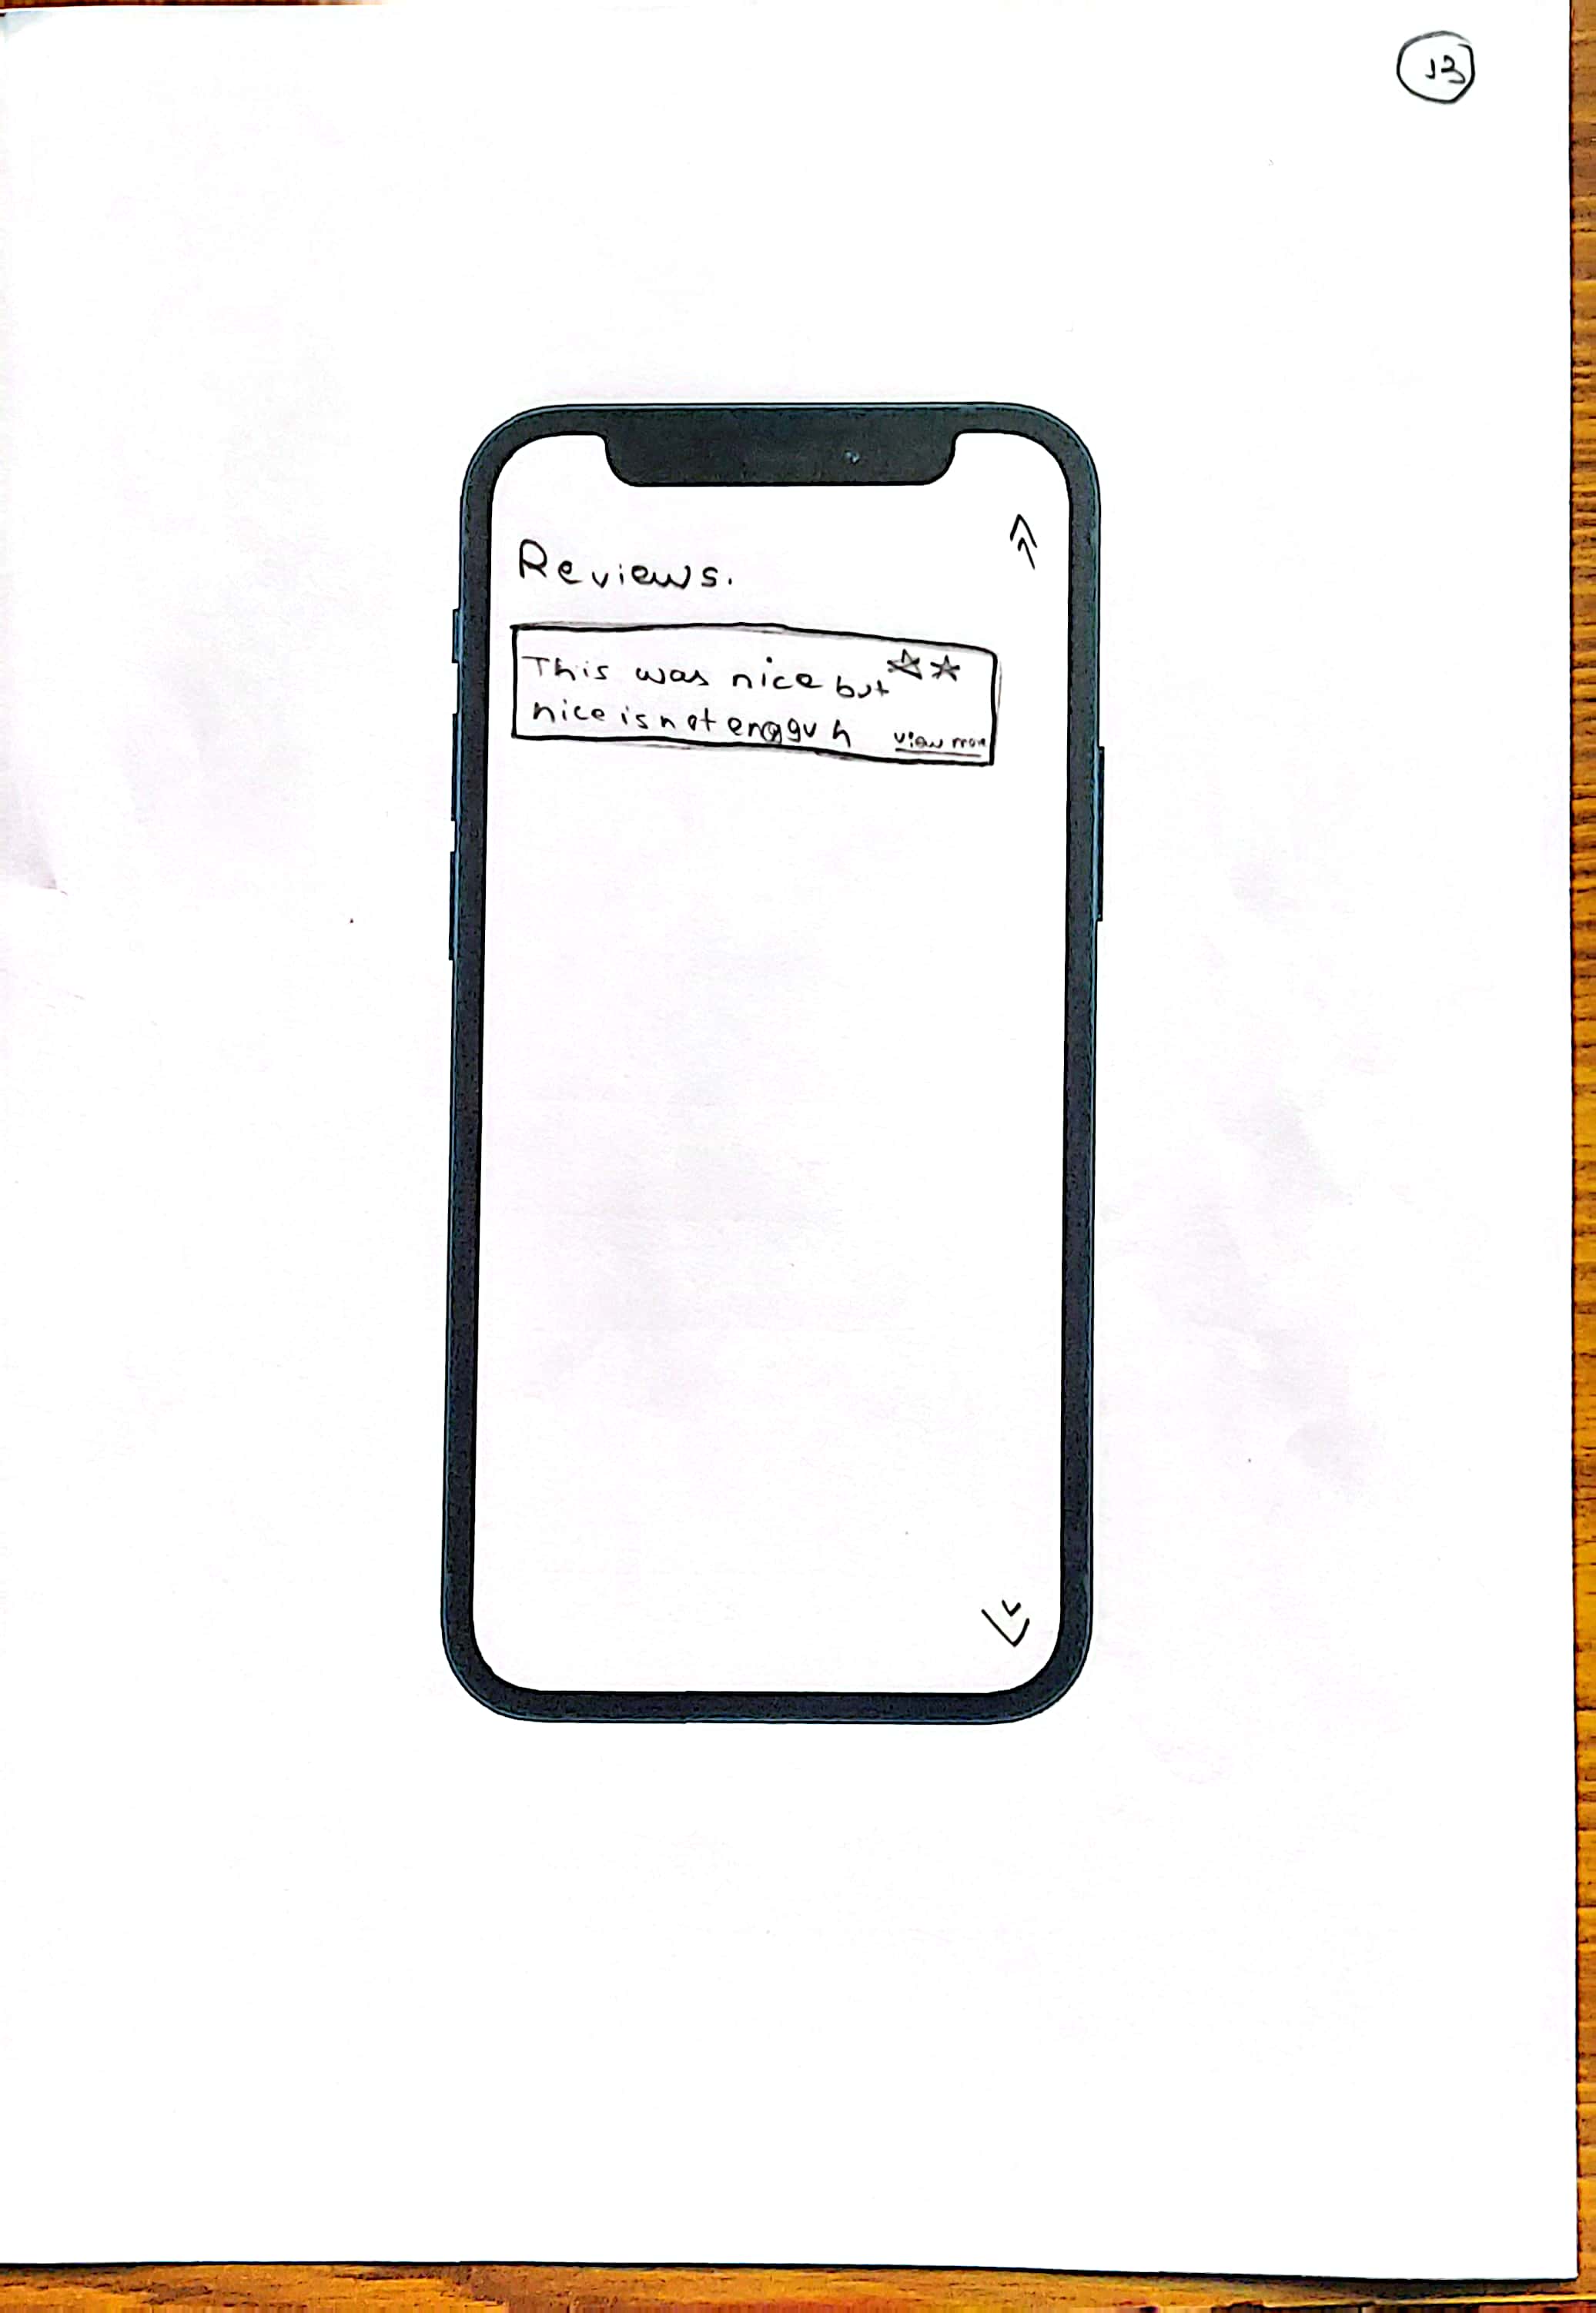 13
Reviews.
This was nice but
nice is not engguh
view more